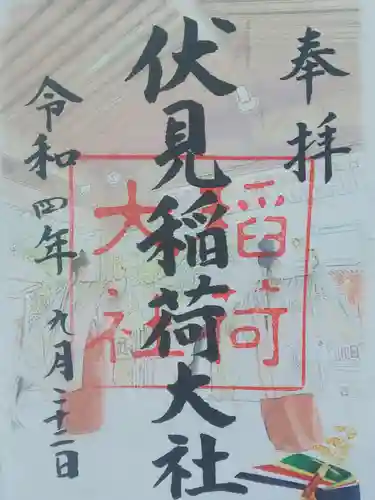 奉拝
伏見稲荷大社
令和四年九月二十二日
稲荷
大社